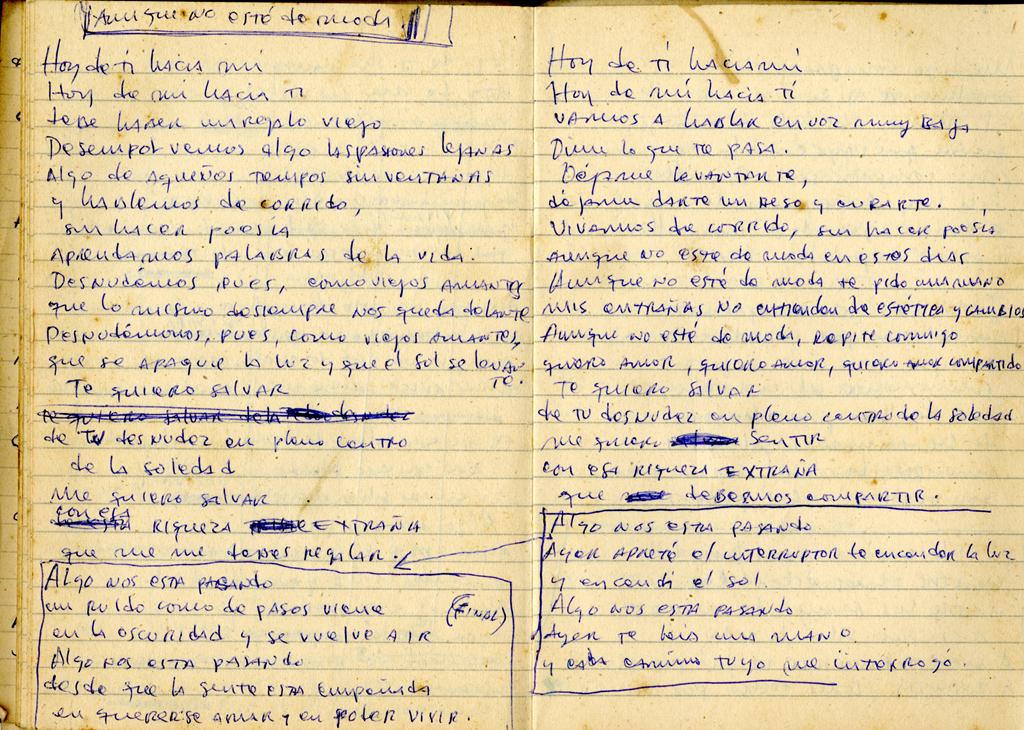 Aunque no esté de moda.
Hoy de ti hacia mí
Hoy de mí hacia ti
debe haber un regalo viejo
Desempolvemos algo las pasiones lejanas
Algo de aqueños tiempos sin ventanas
y hablemos de corrido,
sin hacer poesía
aprendamos palabras de la vida.
Desnudémos, pues, como viejos amantes
que lo mismo de siempre nos queda delante
Desnudémonos, pues, como viejos amantes,
que se apague la luz y que el sol se levante.
Te quiero salvar
te quiero salvar de la
de tu desnudez en pleno centro
de la soledad
me quiero salvar
con esa
riqueza extraña
que me me debes regalar.
Algo nos esta pasando
un ruido como de pasos viene
(FINAL)
en la oscuridad y se vuelve a ir
Algo nos esta pasando
desde que la gente esta empeñada
en quererse amar y en poder vivir.
Hoy de ti hacia mí
Hoy de mí hacia ti
vamos a hablar en voz muy baja
Dime lo que te pasa.
Déjame levantarte,
déjame darte un beso y curarte.
Vivamos de corrido, sin hacer poesía
aunque no este de moda en estos dias
Aunque no esté de moda te pido una mano
mis entrañas no entienden de estética y cambios
Aunque no esté de moda, repite conmigo
quiero amor, quiero amor, quiero amor compartido
Te quiero salvar
de tu desnudez en pleno centro de la soledad
me quiero sentir
con esa riqueza extraña
que debemos compartir.
Algo nos esta pasando
Ayer apreté el interruptor de encender la luz
y encendi el sol.
Algo nos esta pasando
Ayer te leia una mano
y cada camino tuyo me interrogó.